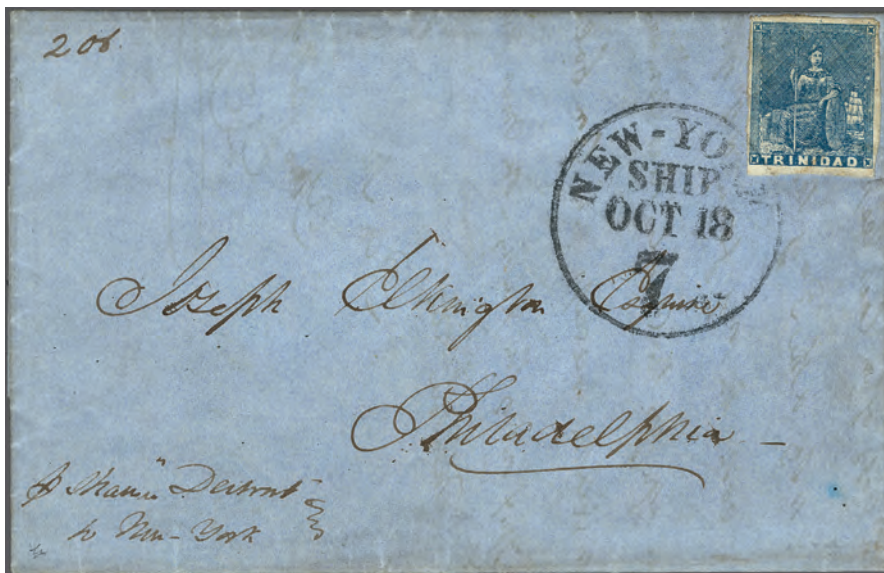 208.
TRINIDAD
NEW-YO
SHIP
OCT 18
7
Joseph Elkington Esquire
Philadelphia
Detroit
to New-York